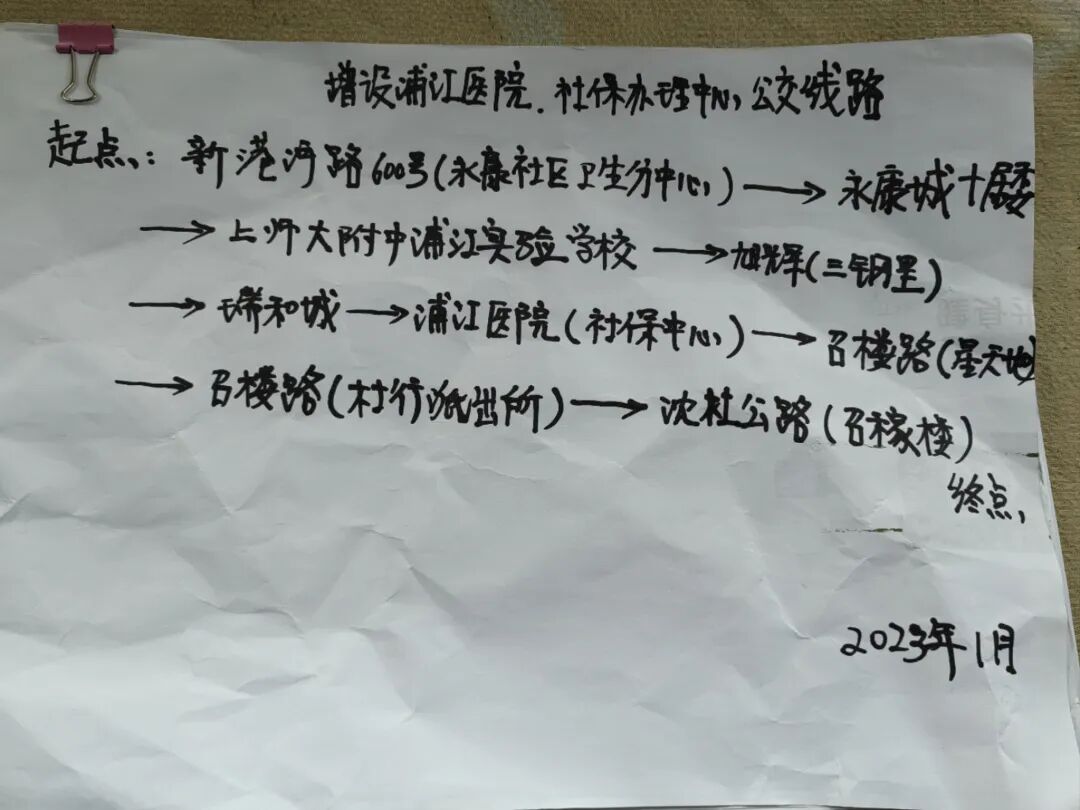 增设浦江医院.社保办理中心公交线路
起点:新港河路600号(永康社区卫生分中心)→永康城十居委
→上师大附中浦江实验学校→旭辉(三钢里)
→瑞和城→浦江医院(社保中心)→召楼路(星天地)
→召楼路(村行派出所)→沈杜公路(召稼楼)
终点
2023年1月